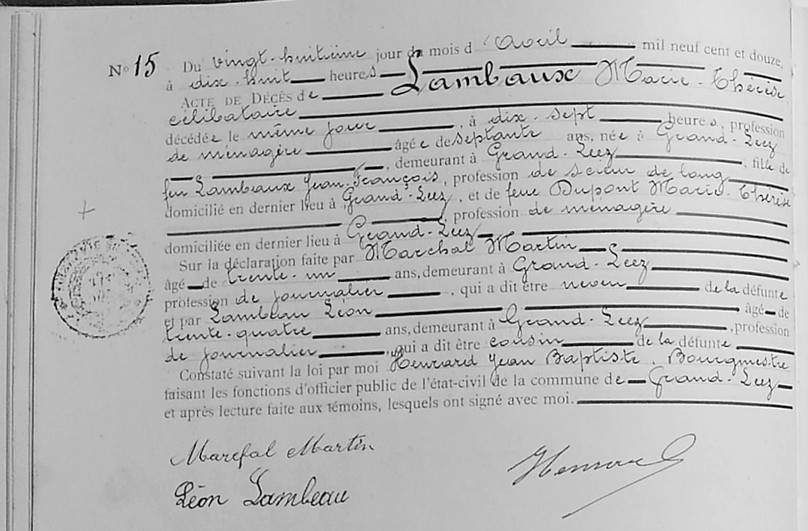 N° 15 Du vingt-huitième jour du mois d'Avril mil neuf cent et douze,
à dix-huit heures
ACTE DE DÉCÈS de Lambaux Marie-Thérèse
célibataire
décédée le même jour, à dix-sept heures, profession
de ménagère âgée de septante ans, née à Grand-Leez
, demeurant à Grand-Leez, fille de
feu Lambeaux Jean-François, profession de scieur de long
domicilié en dernier lieu à Grand-Leez, et de feue Dupont Marie-Thérèse
, profession de ménagère
domiciliée en dernier lieu à Grand-Leez
Sur la déclaration faite par Marchal Martin
âgé de trente-un ans, demeurant à Grand-Leez
profession de journalier, qui a dit être neveu de la défunte
et par Lambeau Léon âgé de
trente-quatre ans, demeurant à Grand-Leez, profession
de journalier, qui a dit être cousin de la défunte
Constaté suivant la loi par moi Henrard Jean Baptiste, Bourgmestre
faisant les fonctions d'officier public de l'état-civil de la commune de Grand-Leez
et après lecture faite aux témoins, lesquels ont signé avec moi.
Marchal Martin
Léon Lambeau